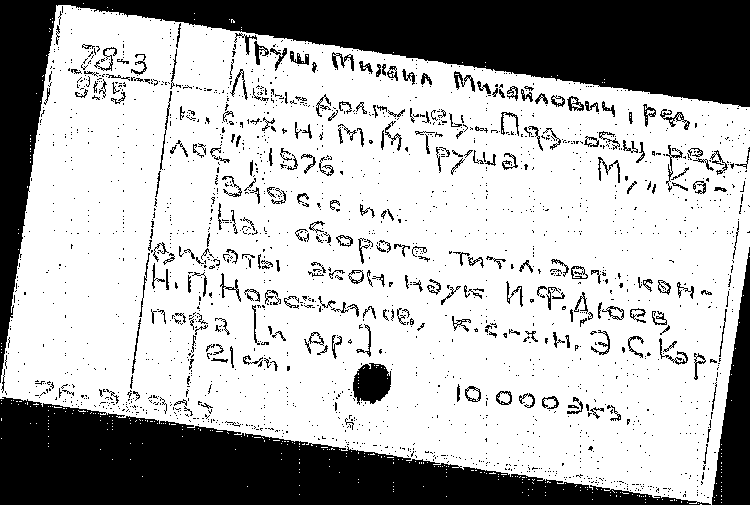 78-3
985
Труш, Михаил Михайлович, ред.
Лен-долгунец. Под общ. ред.
к. с.-х. н. М.М. Труша. М., "Ко-
лос", 1976.
349 с. с ил.
На обороте тит. л. авт.: кан-
дидаты экон. наук И.Ф. Дюев,
Н.П. Новожилов, к.с.-х.н. Э.С. Кор-
пова [и др.].
21 см. 10.000 экз.